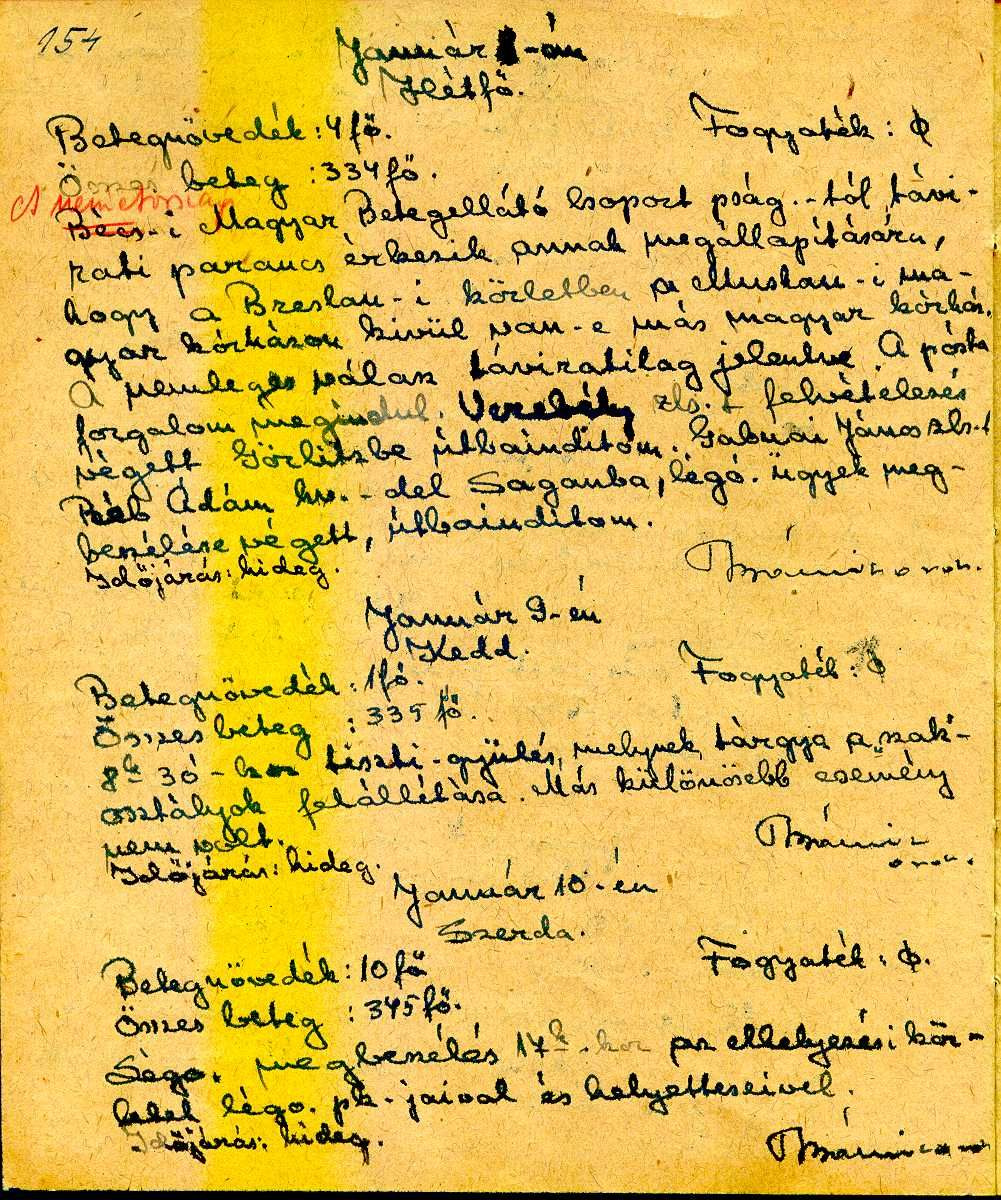 154
Január 8-án
Hétfő.
Betegnövedék: 4 fő. Fogyaték: φ
Összes beteg : 334 fő.
A németország
Bécs-i Magyar Betegellátó Csoport pság.-tól távi-
rati parancs érkezik annak megállapítására,
hogy a Breslau-i körletben a Muskau-i ma-
gyar kórházon kívül van-e más magyar kórház.
A nemleges válasz táviratilag jelentve. A pósta
forgalom megindul. Verebély zls.-t felvételezés
végett Görlitzbe útbaindítom. János zls.-t
Ádám hv.-del Saganba, légó. ügyek meg-
beszélése végett, útbaindítom.
Időjárás: hideg.
Január 9-én
Kedd.
Betegnövedék: 1 fő. Fogyaték: φ
Összes beteg : 335 fő.
8h 30-kor tiszti-gyülés, melynek tárgya a szak-
osztályok felállítása. Más különösebb esemény
nem volt.
Időjárás: hideg.
Január 10-én
Szerda.
Betegnövedék: 10 fő Fogyaték: φ.
Összes beteg : 345 fő.
megbeszélés 17h-kor az elhelyezési kör-
let légo. pk-jaival és helyetteseivel.
Időjárás: hideg.